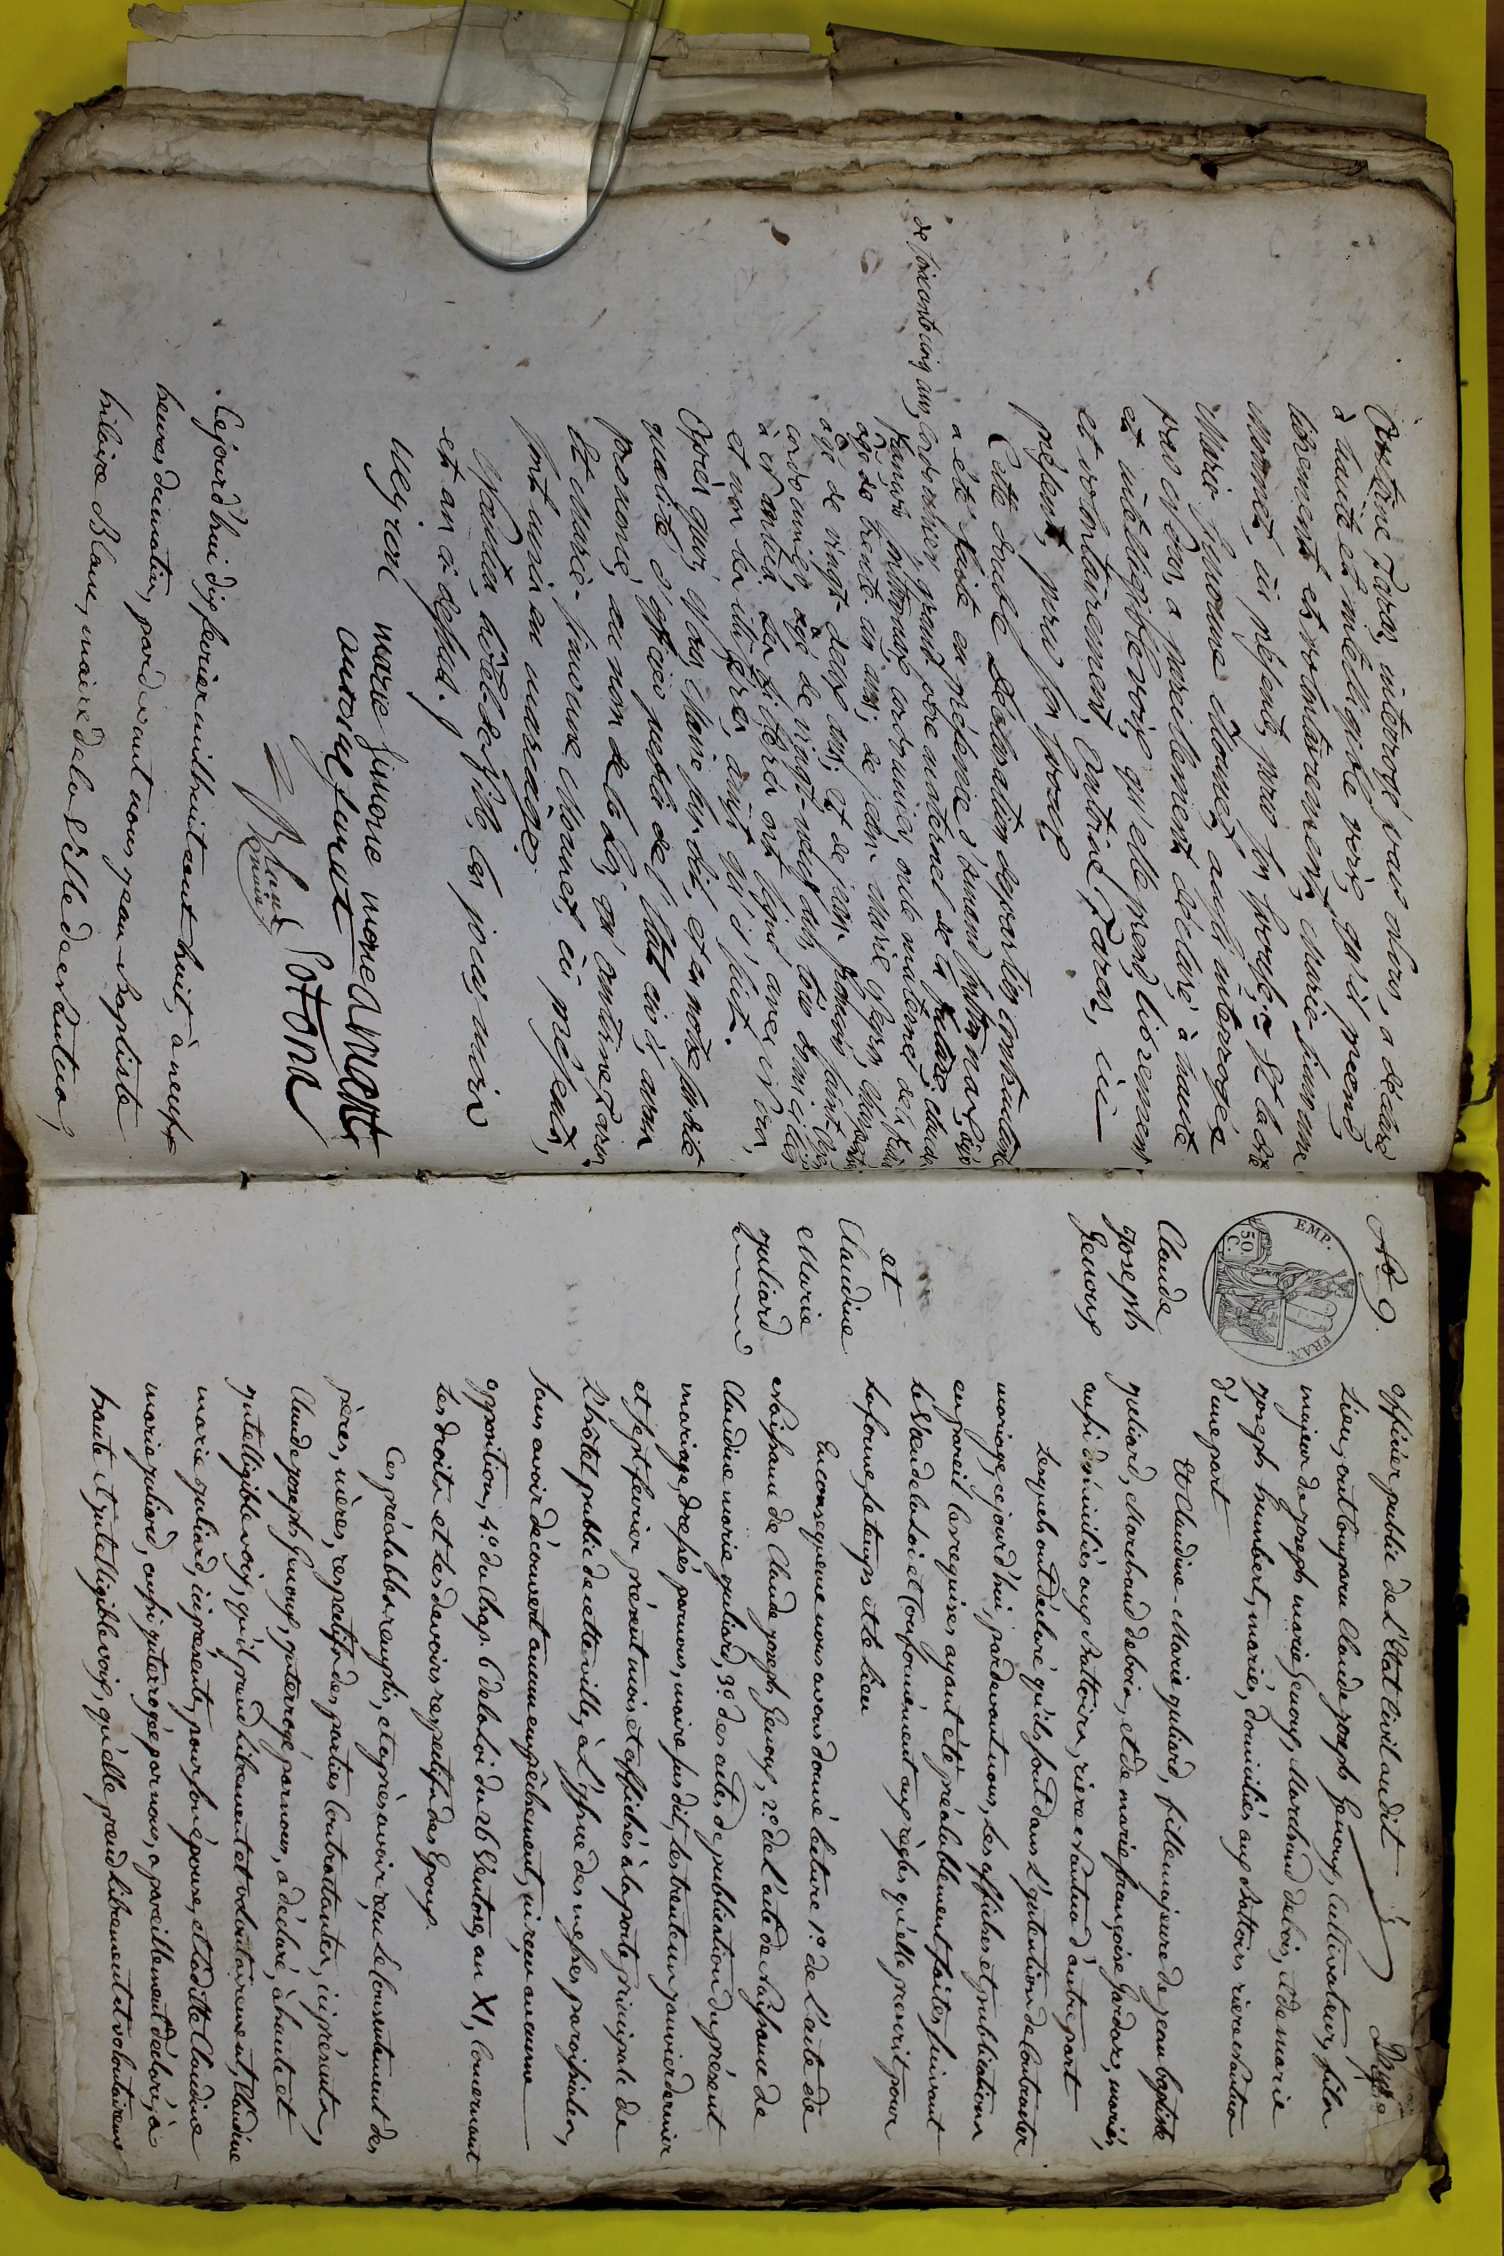 Antoine Favas, interrogé par nous, a déclaré,
à haute et inteligible voix, qu'il prend
librement et volontairement, Marie-Simonne
Monnet, ici présente, pour son épouse; et ladite
Marie Simonne Monnet aussi interrogée
par nous, a pareillement déclaré, à haute
et intelligible voix, qu'elle prend librement
et volontairement, Antoine Favas, ici
présent, pour son époux
Cette double déclaration des parties contractantes
a été faite en présence d'
de soixante cinq ans, cordonnier, grand père maternel de la future, Claude
cordonnier, oncle maternel de la
agé de trente un ans; de jean-marie
agé de vingt-deux ans, et de jean françois
cordonnier, agé de vingt-neuf ans, tous domiciliés
à et nantua
et non les
Après quoi, nous Maire susdit, et en notre susdite
qualité d'officier public de l'état civil, avons
prononcé, au nom de la loi, qu'antoine Favas
Et Marie-Simonne Monnet, ici présents,
sont unis en mariage
Nantua, hôtel de ville, les jour, mois
et an ci dessus.
marie simone mone
antoine
maire
Cejourd'hui dix fevrier mil huit cent huit, à neuf
heures du matin, pardevant nous, jean-Baptiste
hilaire Blanc, maire de la Ville de Nantua,
No 9.
EMP. FRAN.
50. C.
Claude
Joseph
Genoux
et
Claudine
Marie
juliard
officier public de l'Etat Civil audit
Lieu, ont Comparu Claude joseph Genoux, Cultivateur, fils
majeur de joseph marie Genoux, Marchand de bois, et de marie
joseph humbert, mariés, domiciliés aux Battoirs rière Nantua
d'une part
Et Claudine-Marie juliard, fille majeure de jean baptiste
juliard, Marchand de bois, et de marie françoise Gardas, mariés,
aussi domiciliés aux Battoirs, rière Nantua d'autre part
Lesquels ont déclaré qu'ils sont dans l'intention de Contracter
mariage cejourd'hui, pardevant nous, les affiches et publications
en pareil Cas requises ayant été préalablement faites suivant
le Vœu de la loi et Conformément aux règles qu'elle prescrit pour
la forme, le temps et le lieu
En conséquence nous avons donné lecture 1.o de l'acte de
Naissance de Claude joseph Genoux, 2.o de l'acte de Naissance de
Claudine marie juliard, 3.o des actes de publication du présent
mariage, dressés par nous, maire susdit, les trente un janvier dernier
et sept fevrier présent mois, et affichés à la porte principale de
L'hôtel public de cette ville, à L'issue des messes paroissiales,
sans avoir découvert aucun empêchement, ni reçu aucune
opposition, 4.o du Chap. 6 de la loi du 26 Ventose, an XI, Concernant
Les droits et les devoirs respectifs des Epoux.
Ces préalables remplis, et après avoir reçu le Consentement des
pères, mères, respectifs des parties Contractantes, ici présents,
Claude joseph Genoux, interrogé par nous, a déclaré, à haute et
intelligible voix, qu'il prend librement et volontairement, Claudine
marie juliard, ici présente, pour son épouse, et Laditte Claudine
marie juliard, aussi interrogée par nous, a pareillement déclaré, à
haute et intelligible voix, qu'elle prend librement et volontairement